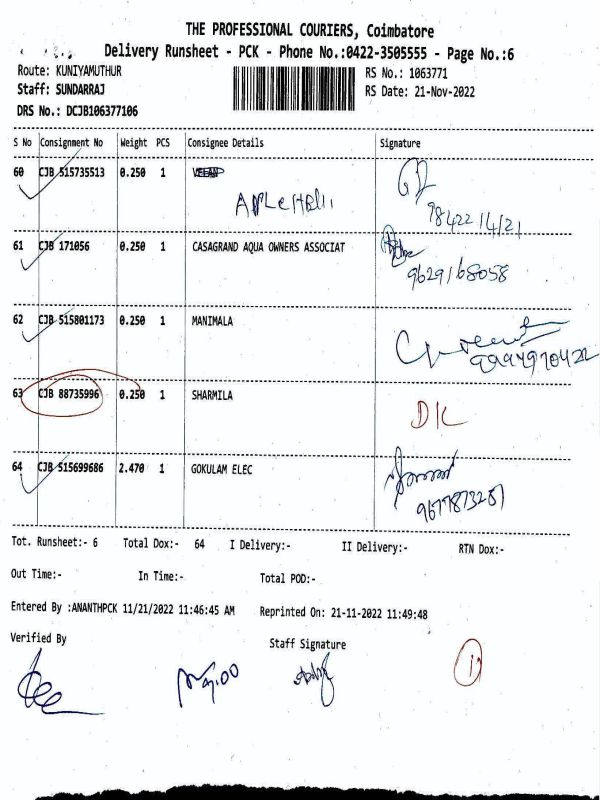 THE PROFESSIONAL COURIERS, Coimbatore
Delivery Runsheet - PCK - Phone No.:0422-3505555 - Page No.:6
Route: KUNIYAMUTHUR RS No.: 1063771
Staff: SUNDARRAJ RS Date: 21-Nov-2022
DRS No.: DCJB106377106
S No Consignment No Weight PCS Consignee Details Signature
60 CJB 515735513 0.250 1
61 CJB 171056 0.250 1 CASAGRAND AQUA OWNERS ASSOCIAT
9629168058
62 CJB 515801173 0.250 1 MANIMALA
9994970422
63 CJB 88735996 0.250 1 SHARMILA
64 CJB 515699686 2.470 1 GOKULAM ELEC
Tot. Runsheet:- 6 Total Dox:- 64 I Delivery:- II Delivery:- RTN Dox:-
Out Time:- In Time:- Total POD:-
Entered By :ANANTHPCK 11/21/2022 11:46:45 AM Reprinted On: 21-11-2022 11:49:48
Verified By Staff Signature